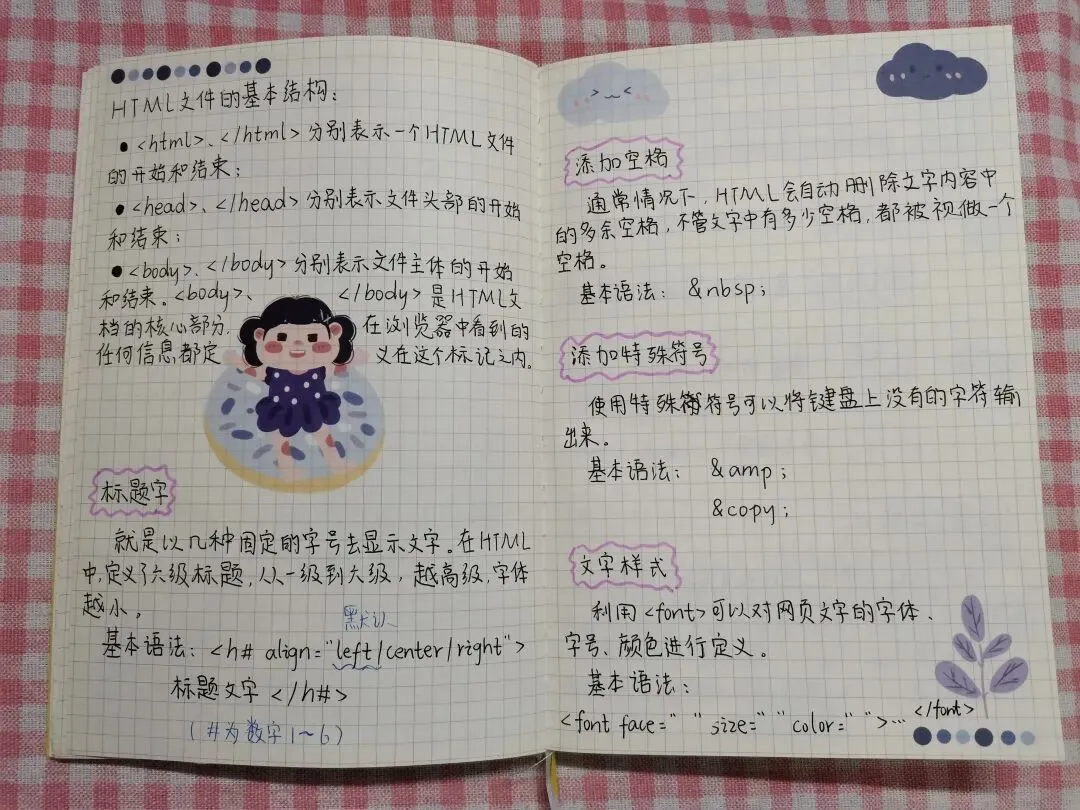 HTML文件的基本结构：
●<html>、</html>分别表示一个HTML文件
的开始和结束；
●<head>、</head>分别表示文件头部的开始
和结束；
●<body>、</body>分别表示文件主体的开始
和结束。<body>、</body>是HTML文
档的核心部分，在浏览器中看到的
任何信息都定义在这个标记之内。
标题字
就是以几种固定的字号去显示文字。在HTML
中，定义了六级标题，从一级到六级，越高级，字体
越小。
默认
基本语法：<h# align="left/center/right">
标题文字</h#>
(#为数字1~6)
添加空格
通常情况下，HTML会自动删除文字内容中
的多余空格，不管文字中有多少空格，都被视做一个
空格。
基本语法：&nbsp;
添加特殊符号
使用特殊符号可以将键盘上没有的字符输
出来。
基本语法：&amp;
&copy;
文字样式
利用<font>可以对网页文字的字体、
字号、颜色进行定义。
基本语法：
<font face=" " size=" " color=" ">…</font>